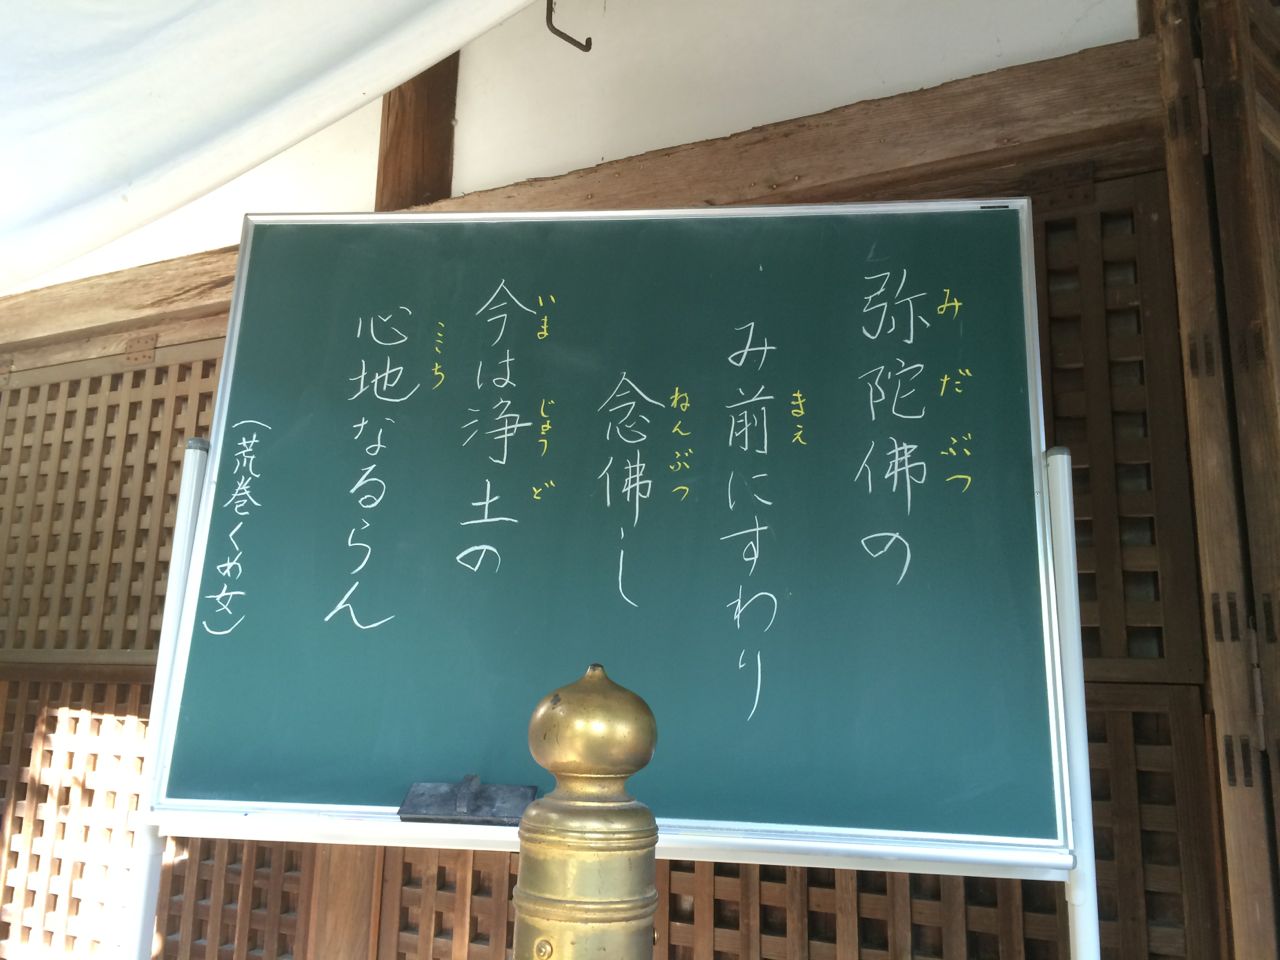 弥陀佛の
みだぶつ
み前にすわり
まえ
念佛し
ねんぶつ
今は浄土の
いまじょうど
心地なるらん
ここち
（荒巻くめ女）